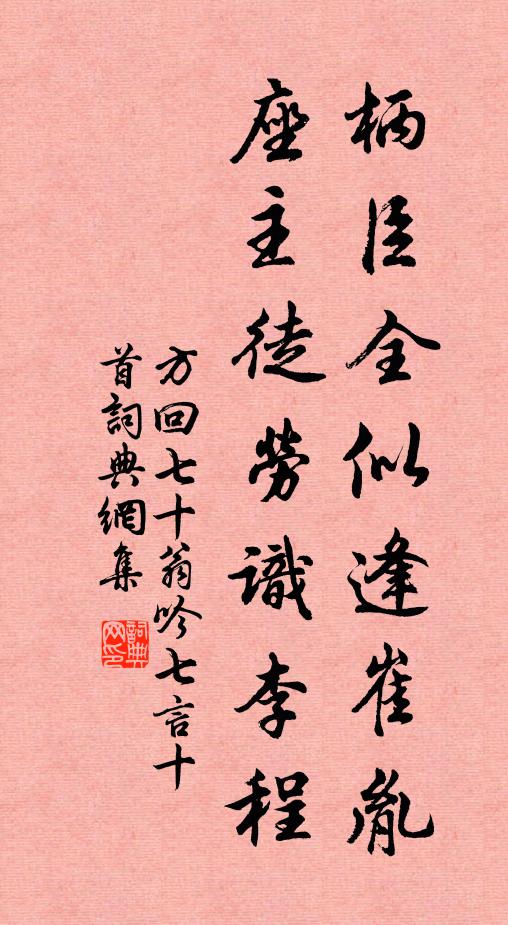 柄臣全似逢崔胤
座主徒勞識李程
方回七十翁吟七言十
首詞典網集
詞典网印